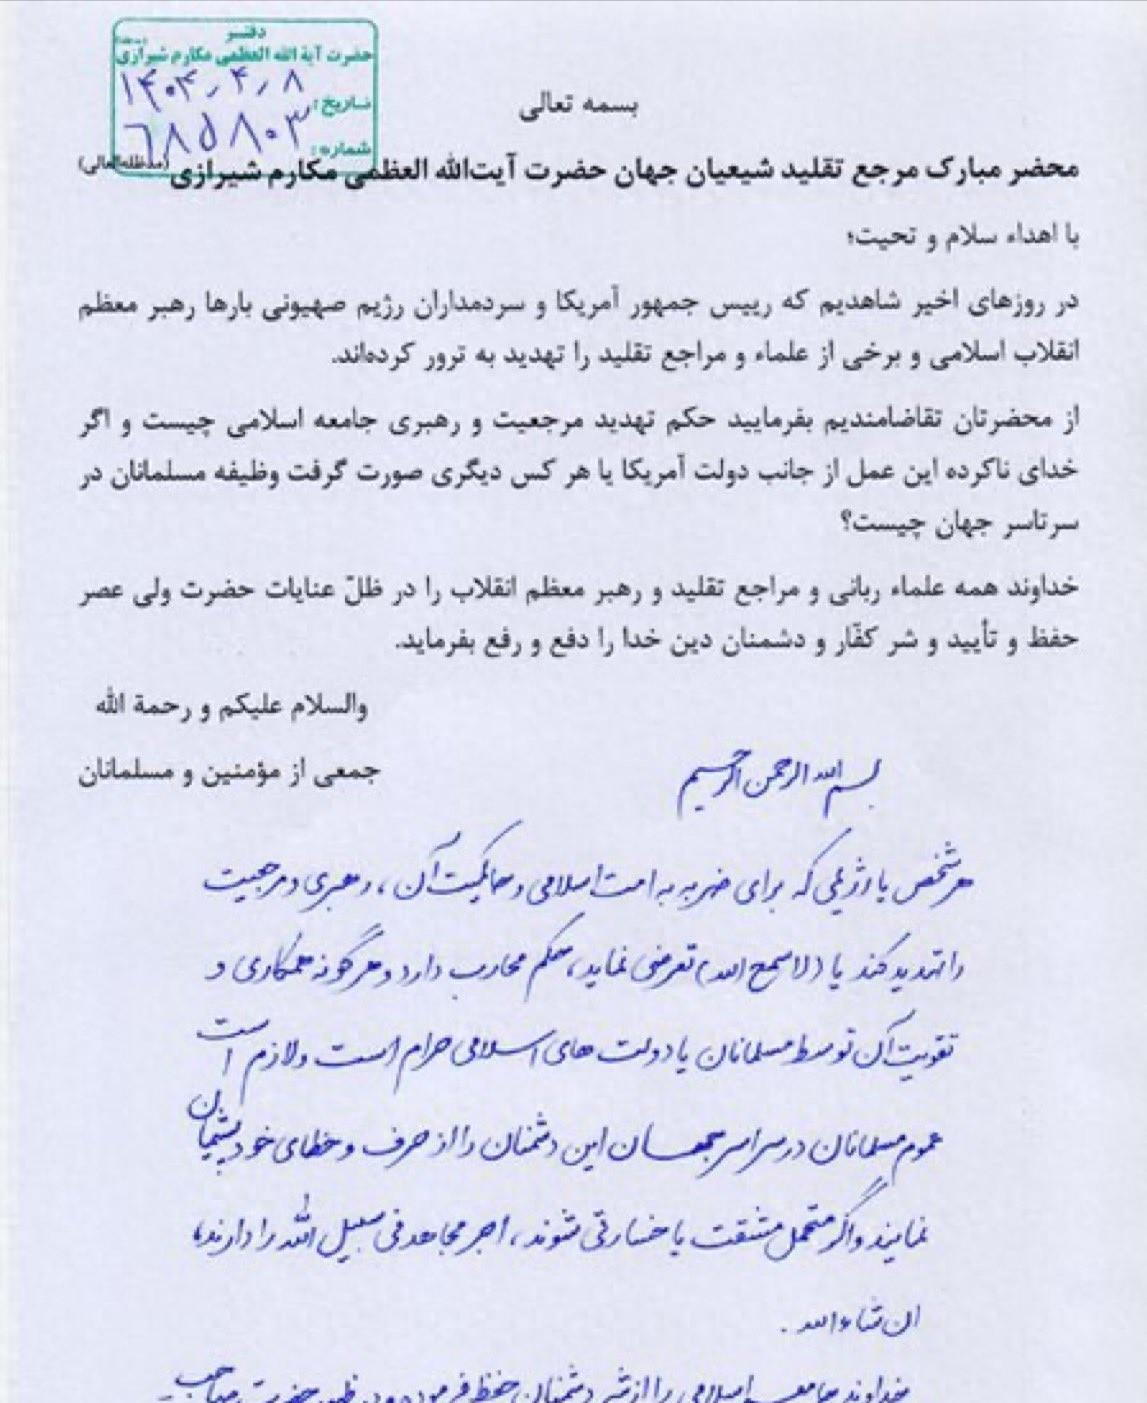 دفتر
حضرت آیة الله العظمی مکارم شیرازی
تاریخ: ۱۴۰۴،۴،۸
شماره: ۶۸۵۸۰۳
بسمه تعالی
محضر مبارک مرجع تقلید شیعیان جهان حضرت آیت‌الله العظمی مکارم شیرازی (مدظله‌العالی)
با اهداء سلام و تحیت؛
در روزهای اخیر شاهدیم که رییس جمهور آمریکا و سردمداران رژیم صهیونی بارها رهبر معظم
انقلاب اسلامی و برخی از علماء و مراجع تقلید را تهدید به ترور کرده‌اند.
از محضرتان تقاضامندیم بفرمایید حکم تهدید مرجعیت و رهبری جامعه اسلامی چیست و اگر
خدای ناکرده این عمل از جانب دولت آمریکا یا هر کس دیگری صورت گرفت وظیفه مسلمانان در
سرتاسر جهان چیست؟
خداوند همه علماء ربانی و مراجع تقلید و رهبر معظم انقلاب را در ظلّ عنایات حضرت ولی عصر
حفظ و تأیید و شر کفّار و دشمنان دین خدا را دفع و رفع بفرماید.
والسلام علیکم و رحمة الله
جمعی از مؤمنین و مسلمانان
بسم الله الرحمن الرحیم
هر شخص یا رژیمی که برای ضربه به امت اسلامی و حاکمیت آن، رهبری و مرجعیت
را تهدید کند یا (لا سمح الله) تعرضی نماید، حکم محارب دارد و هرگونه همکاری و
تقویت آن توسط مسلمانان یا دولت های اسلامی حرام است و لازم است
عموم مسلمانان در سراسر جهان این دشمنان را از حرف و خطای خود پشیمان
نمایند و اگر متحمل مشقت یا خسارتی شوند، اجر مجاهد فی سبیل الله را دارند،
ان شاء الله.
خداوند جامعه اسلامی را از شر دشمنان حفظ فرموده و در ظهور حضرت صاحب